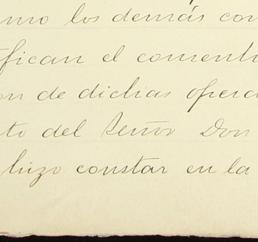 mo los demás con
fican el consent
on de dichas opera
to del Señor Don
hizo constar en la